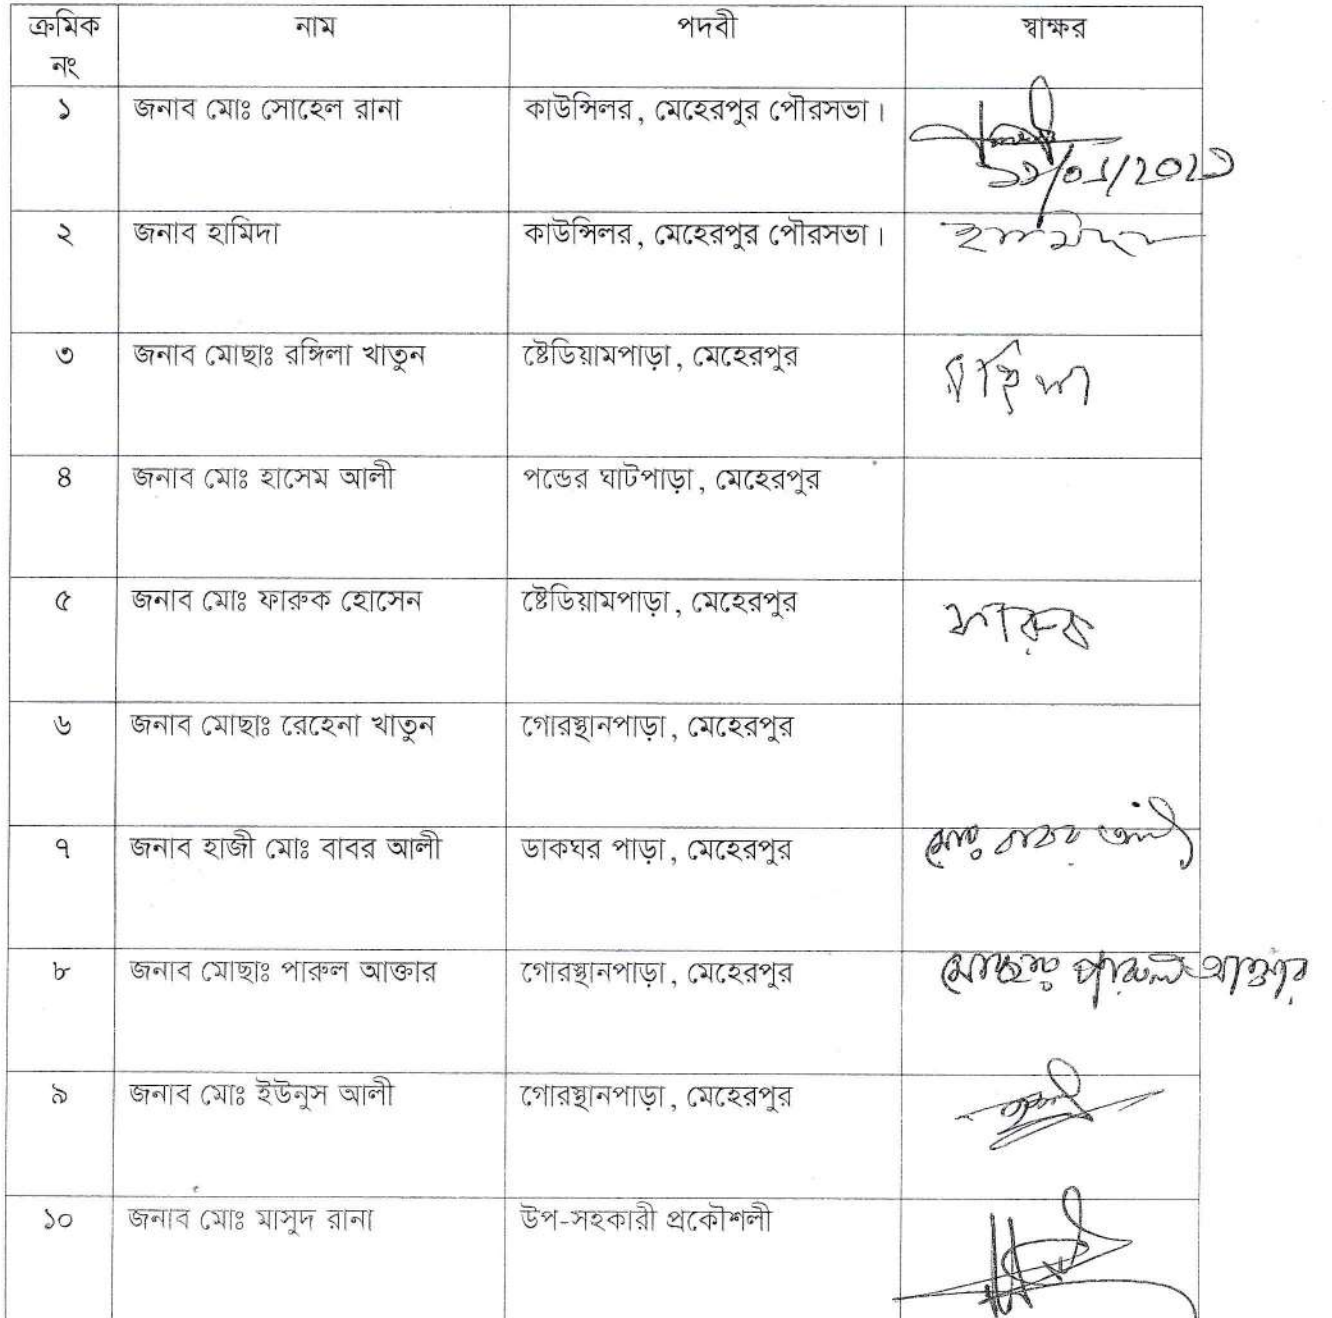 ক্রমিক নাম পদবী স্বাক্ষর
নং
১ জনাব মোঃ সোহেল রানা কাউন্সিলর, মেহেরপুর পৌরসভা।
২ জনাব হামিদা কাউন্সিলর, মেহেরপুর পৌরসভা। হামিদা
৩ জনাব মোছাঃ রঙ্গিলা খাতুন ষ্টেডিয়ামপাড়া, মেহেরপুর
৪ জনাব মোঃ হাসেম আলী পন্ডের ঘাটপাড়া, মেহেরপুর
৫ জনাব মোঃ ফারুক হোসেন ষ্টেডিয়ামপাড়া, মেহেরপুর ফারুক
৬ জনাব মোছাঃ রেহেনা খাতুন গোরস্থানপাড়া, মেহেরপুর
৭ জনাব হাজী মোঃ বাবর আলী ডাকঘর পাড়া, মেহেরপুর মোঃ বাবর আলী
৮ জনাব মোছাঃ পারুল আক্তার গোরস্থানপাড়া, মেহেরপুর মোছাঃ পারুল আক্তার
৯ জনাব মোঃ ইউনুস আলী গোরস্থানপাড়া, মেহেরপুর
১০ জনাব মোঃ মাসুদ রানা উপ-সহকারী প্রকৌশলী